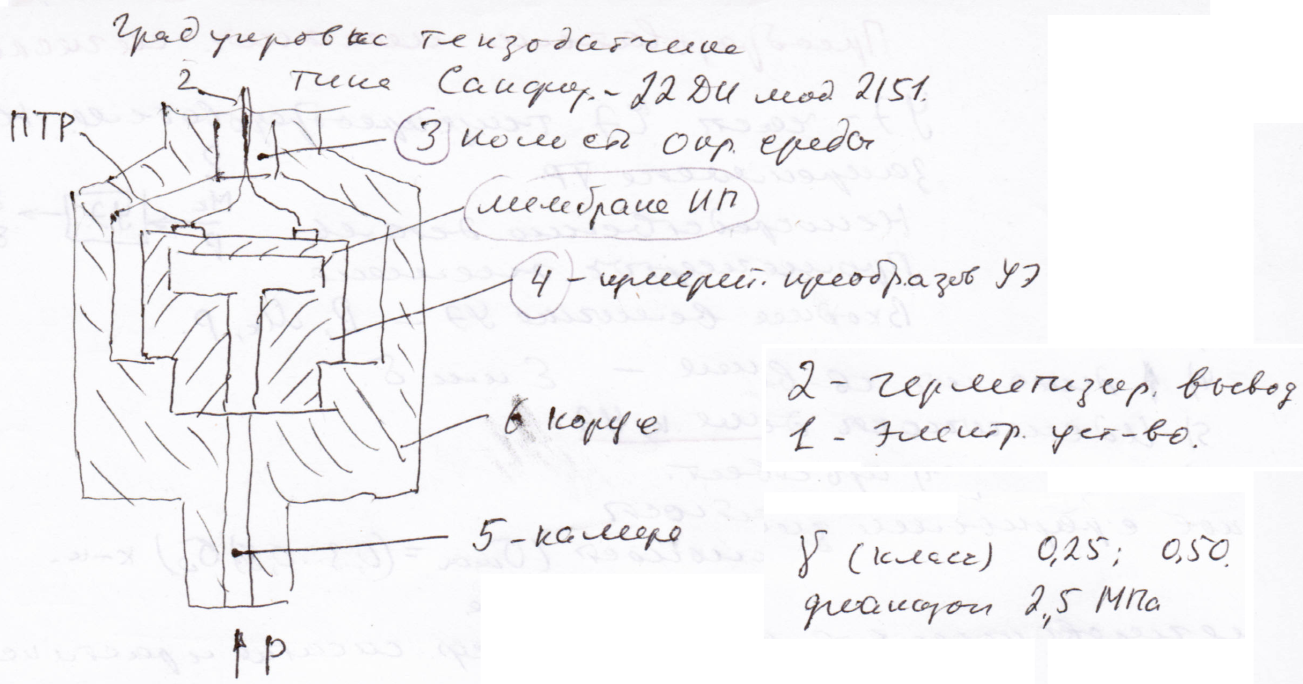 Градуировка тензодатчика
типа Сапфир - 22 ДИ мод 2151.
2
ПТР
3 полость окр. среды
мембрана ИП
4 - измерит. преобразов УЭ
2 - герметизир. вывод
1 - электр. уст-во.
6 корпус
5 - камера
γ (класс) 0,25; 0,50.
диапазон 2,5 МПа
P